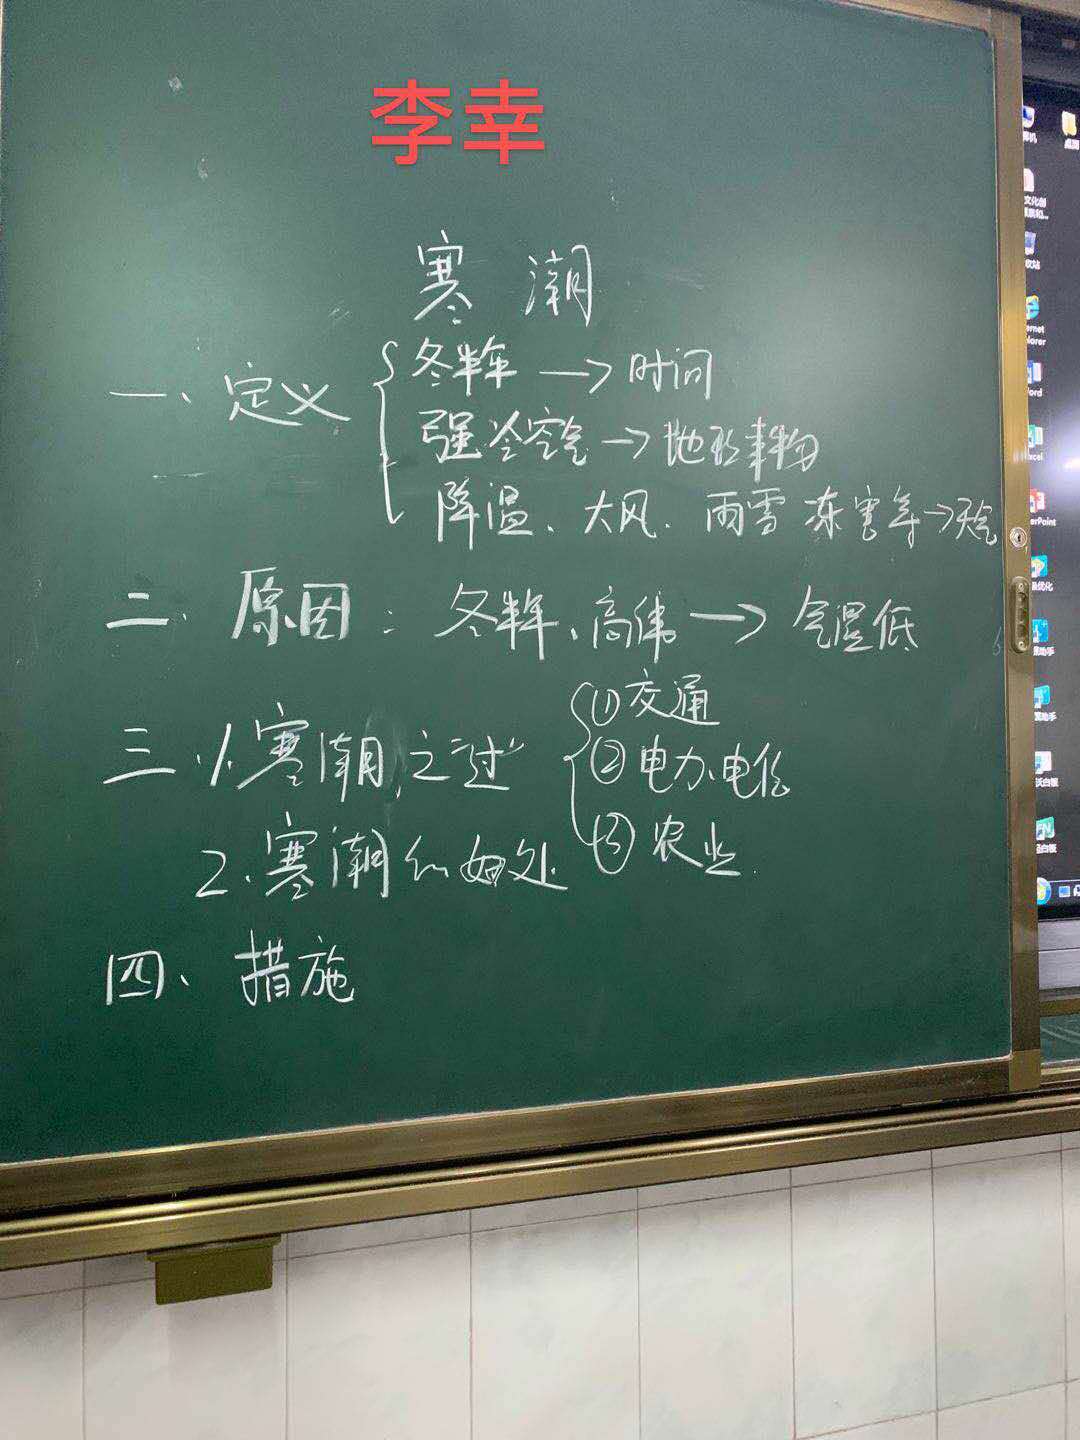 李幸
寒潮
一、定义
冬半年→时间
强冷空气→地形事物
降温、大风、雨雪 冻害等→天气
二、原因：冬半年、高纬→气温低
三、1、寒潮之“过”
①交通
②电力、电信
③农业
2、寒潮的好处
四、措施
桌面
回收站
Word
Excel